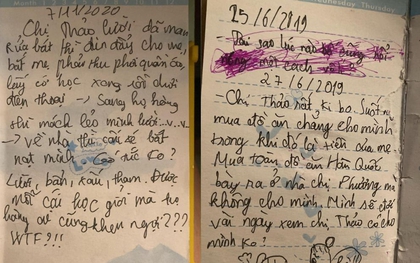 7/11/2020
Chị Thảo lười dã man
Rửa bát thì đùn đẩy cho mẹ,
bắt mẹ phải thu phơi quần áo,
lấy cớ học xong rồi chơi
điện thoại → Sang họ hàng
thì mách lẻo mình lười.v.v..
→ Về nhà thì cậu sẽ bắt
nạt mình. tức ko?
Lười, bẩn, xấu, tham. Được
mỗi cái học giỏi mà họ
hàng ai cũng khen ngợi???
WTF?!!
25/6/2019
27/6/2019
- Chị Thảo rất ki bo. Suốt ngày
mua đồ ăn chẳng cho mình
trong khi đó là tiền của mẹ.
Mua toàn đồ ăn Hàn Quốc
bày ra ở nhà chị Phương mà
không cho mình. Mình sẽ đợi
vài ngày xem chị Thảo có cho
mình ko?